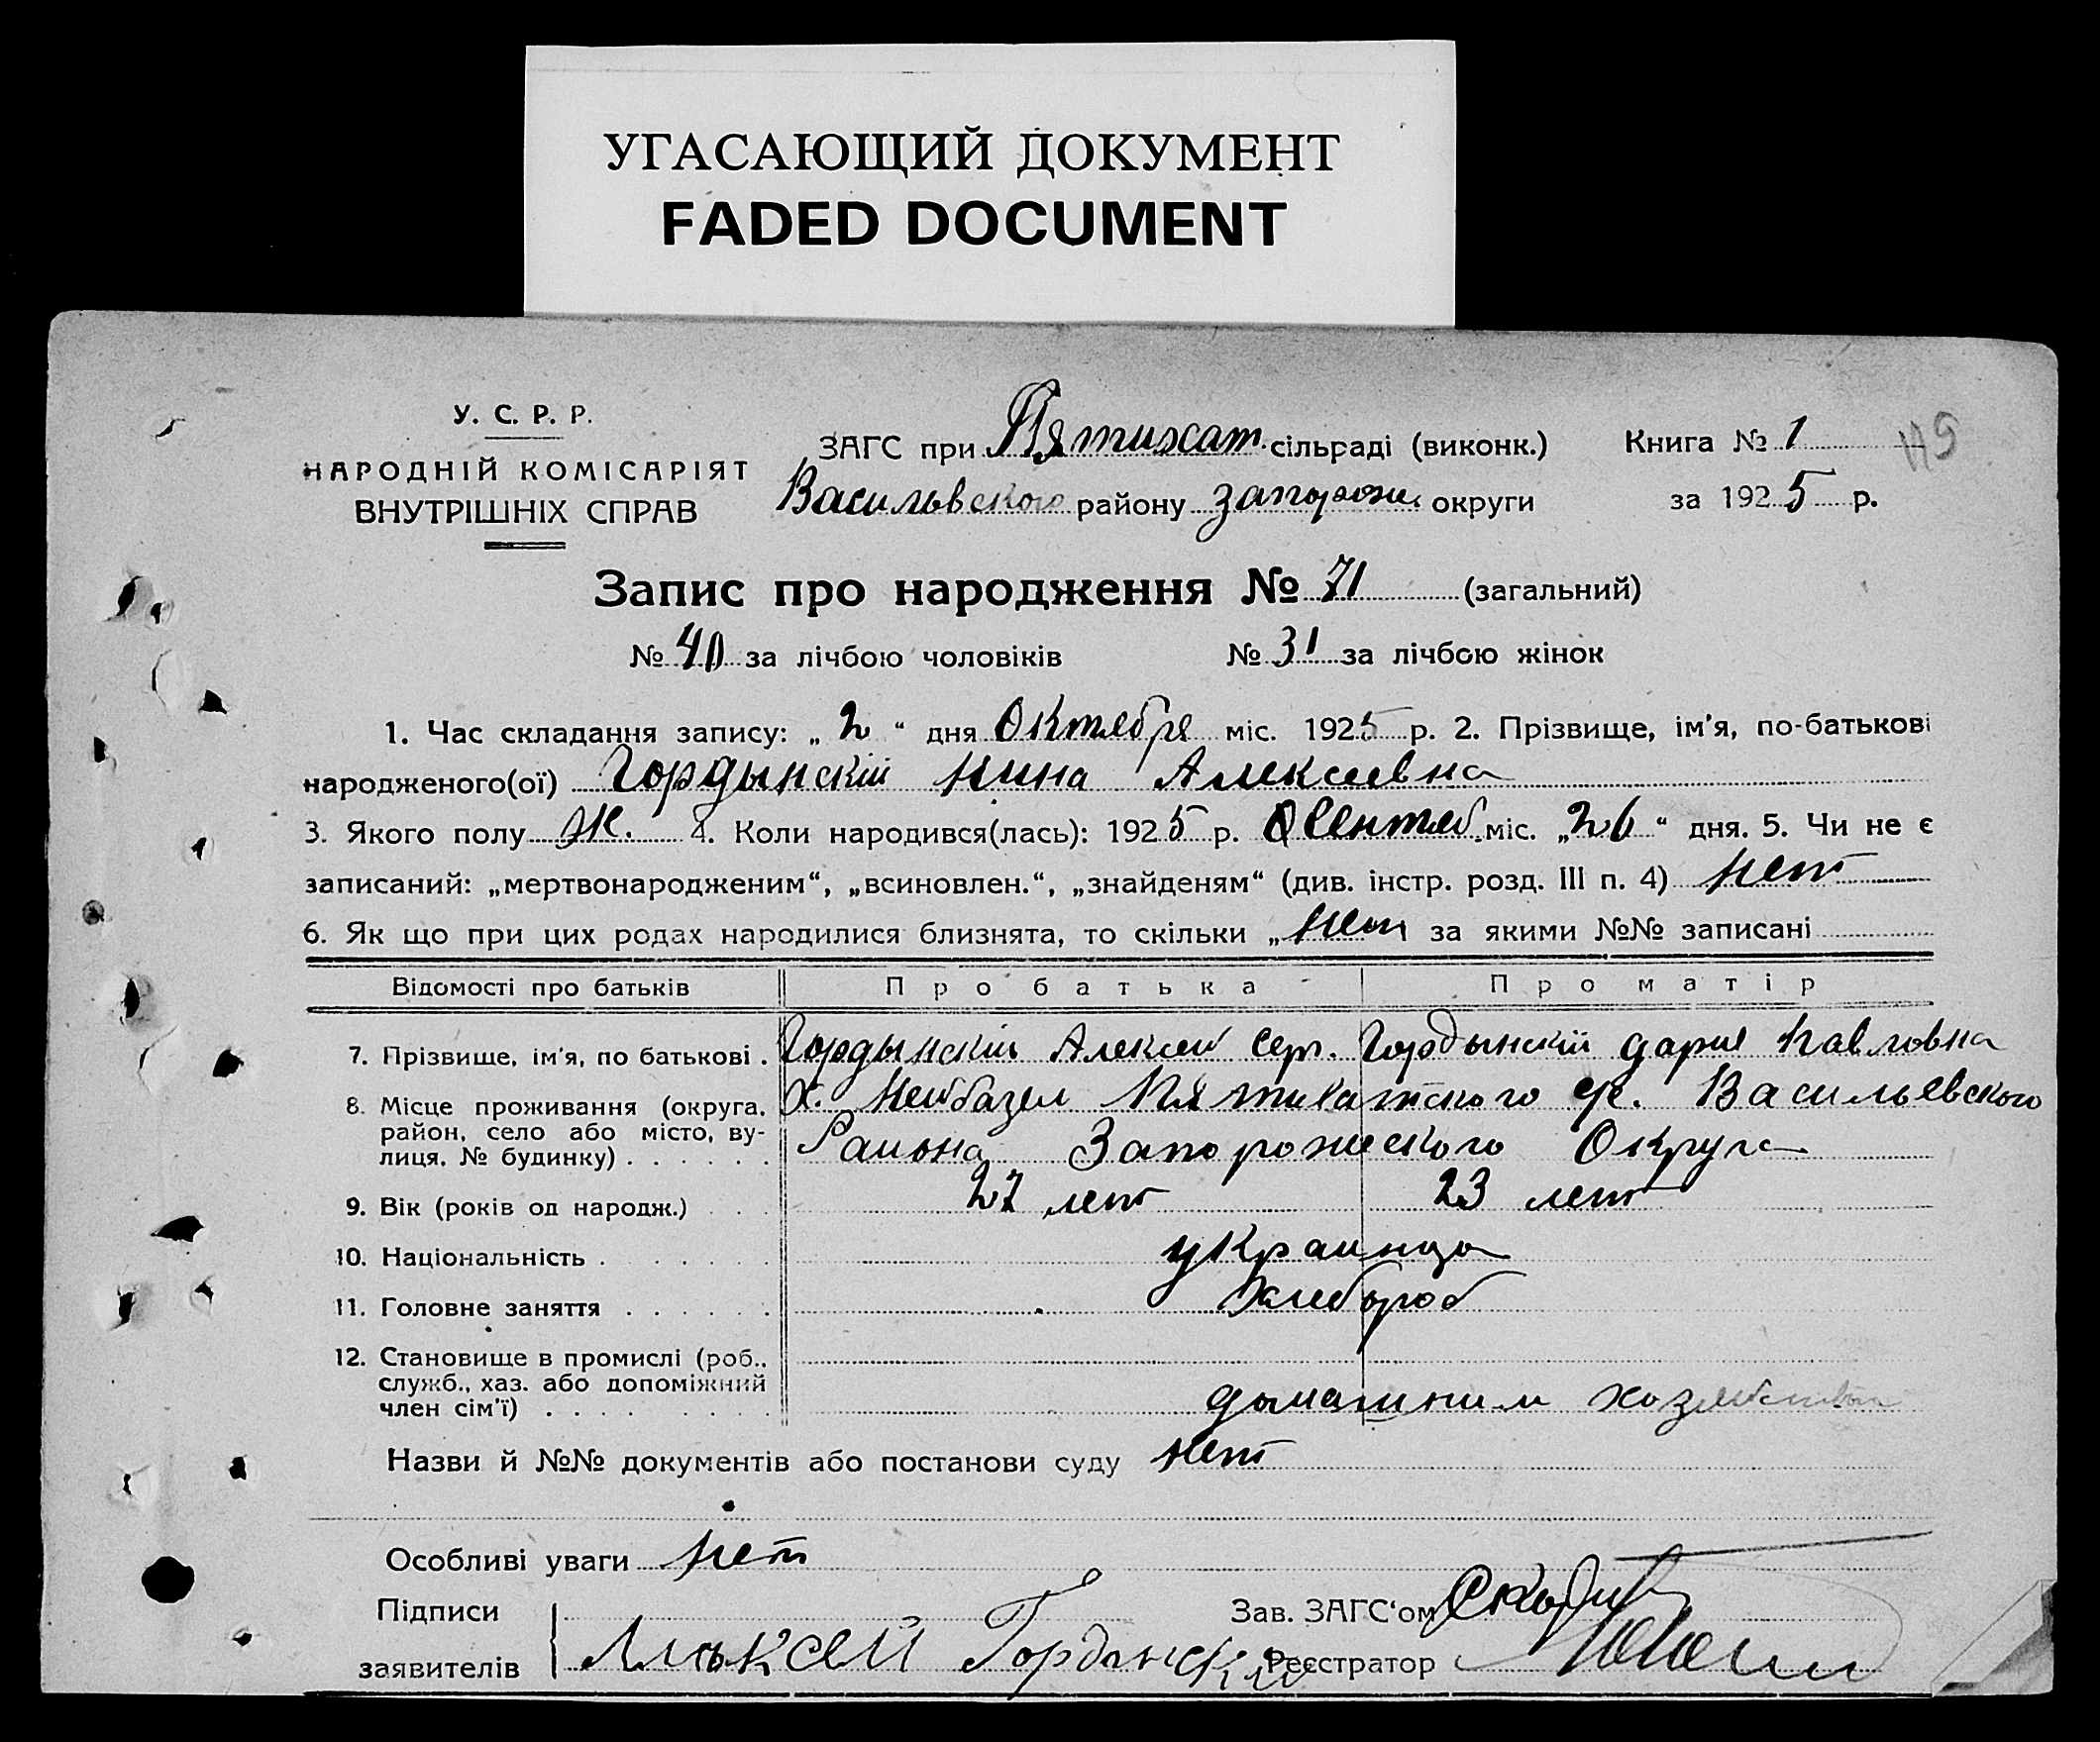 УГАСАЮЩИЙ ДОКУМЕНТ
FADED DOCUMENT
У. С. Р. Р.
НАРОДНІЙ КОМІСАРІЯТ
ВНУТРІШНІХ СПРАВ
ЗАГС при Пятихат. сільраді (виконк.)
Васильвского району Запорож. округи
Книга № 1
119
за 1925 р.
Запис про народження № 71 (загальний)
№ 40 за лічбою чоловіків № 31 за лічбою жінок
1. Час складання запису: „ 2 “ дня Октября міс. 1925 р. 2. Прізвище, ім'я, по-батькові
народженого(ої) Гордынскій Нина Алексеевна
3. Якого полу Ж. 4. Коли народився(лась): 1925 р. Сентяб. міс. „26“ дня. 5. Чи не є
записаний: „мертвонародженим“, „всиновлен.“, „знайденям“ (див. інстр. розд. III п. 4) нет
6. Як що при цих родах народилися близнята, то скільки „нет за якими №№ записані
Відомості про батьків Про батька Про матір
7. Прізвище, ім'я, по батькові . Гордынскій Алексей Серг. Гордынскій Дария Павловна
8. Місце проживання (округа, район, село або місто, вулиця, № будинку) х. Нейбазел Пятихатского Васильевского
Района Запорожского Округа
9. Вік (років од народж.) 27 лет 23 лет
10. Національність украинца
11. Головне заняття Хлебороб
12. Становище в промислі (роб.,
служб., хаз. або допоміжний
член сім'ї) домашним хозяйством
Назви й №№ документів або постанови суду нет
Особливі уваги нет
Підписи
заявителів Алексей Гордынский
Зав. ЗАГС'ом
Реєстратор